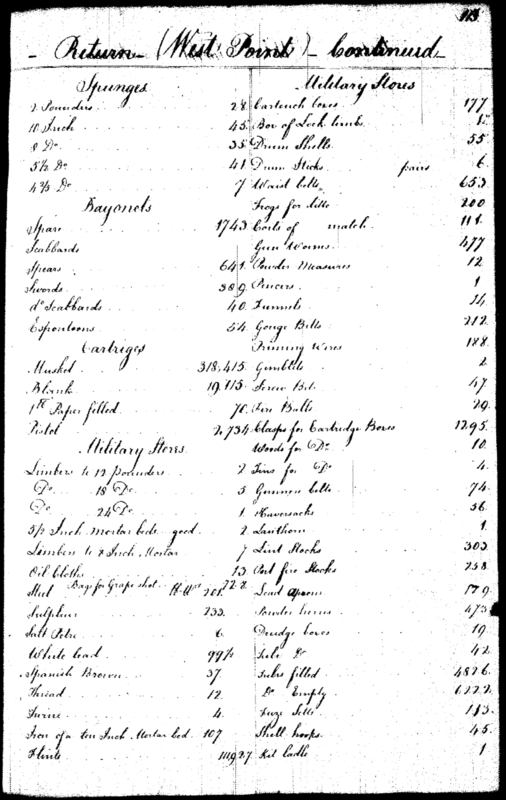 113
Return (West Point) Continued
Spunges
2 Pounders 28
10 Inch 45
8 Do 35
5½ Do 41
4⅖ Do 7
Bayonets
Spare 1743
Scabbards
Spears 641
Swords 389
do Scabbards 40
Espontoons 54
Cartriges
Musket 318,415
Blank 19,115
Paper filled 70
Pistol 2,734
Military Stores
Limbers to 12 pounders 2
Do 18 Do 5
Do 24 Do 1
5½ Inch Mortar beds good 2
Limbers to 8 Inch Mortar 7
Oil Cloths 13
Bags for Grape shot 728
Steel 201
Sulphur 233
Salt Petre 6
White lead 99½
Spanish Brown 37
Thread 12
Twine 4
Iron of a ten Inch Mortar bed 107
Flints 111927
Military Stores
Cartouch boxes 177
Box of Lock limbs 1
Drum Shells 55
Drum Sticks pairs 6
Waist belts 653
Frogs for ditto 200
Coils of match 111
Gun Worms 477
Powder Measures 12
Pincers 1
Funnels 14
Gouge Bitts 212
Priming Wires 188
Gimblets 2
Screw Bits 47
Fire Balls 29
Clasps for Cartridge Boxes 1295
Woods for Do 10
Tins for Do 4
Gunners belts 74
Haversacks 56
Lanthorn 1
Lint Stocks 303
Port fire Stocks 258
Lead Aprons 179
Powder horns 473
Drudge boxes 19
Tube Do 42
Tubes filled 4826
Do Empty 6222
Fuze Setts 113
Shell hooks 45
Kit ladle 1